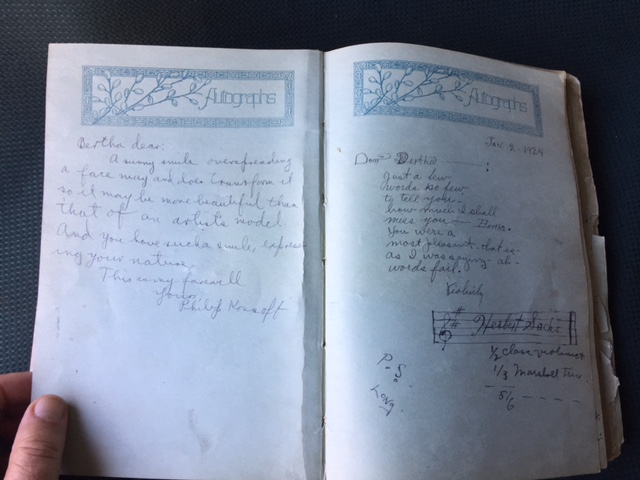 Autographs
Bertha dear:
A sunny smile overspreading
a face may and does transform it
so it may be more beautiful than
that of an artists model.
And you have such a smile, express-
ing your nature.
This is my farewell
Your,
Philip
Autographs
Jan. 2 - 1924
Dear Bertha :
Just a few
words so few
to tell you -
how much I shall
miss you
You were a
most pleasant - that is -
as I was saying - ah -
words fail.
Herbert Sachs
P. S.
1/2 class violinist
1/3 Marshall
5/6